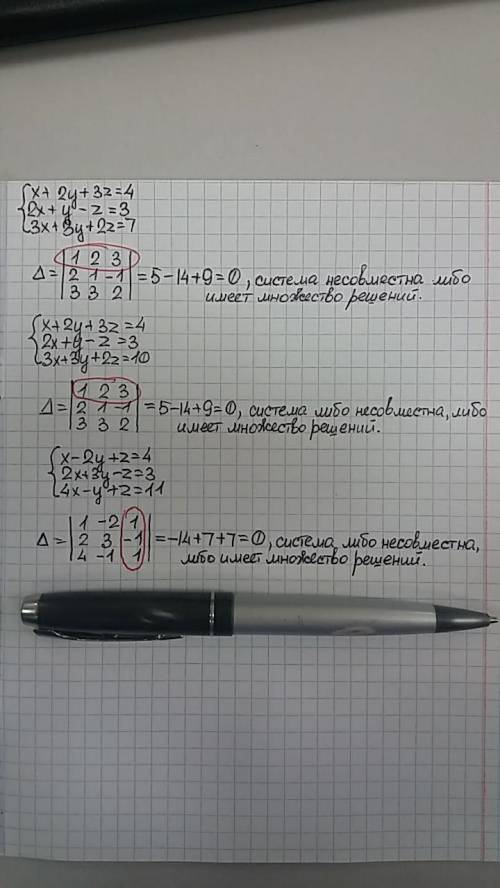 {x+2y+3z=4
{2x+y-z=3
{3x+3y+2z=7
Δ=|1 2 3|
|2 1 -1|=5-14+9=0, система несовместна либо
|3 3 2| имеет множество решений.
{x+2y+3z=4
{2x+y-z=3
{3x+3y+2z=10
Δ=|1 2 3|
|2 1 -1|=5-14+9=0, система либо несовместна, либо
|3 3 2| имеет множество решений.
{x-2y+z=4
{2x+3y-z=3
{4x-y+z=11
Δ=|1 -2 1|
|2 3 -1|=-14+7+7=0, система либо несовместна,
|4 -1 1| либо имеет множество решений.